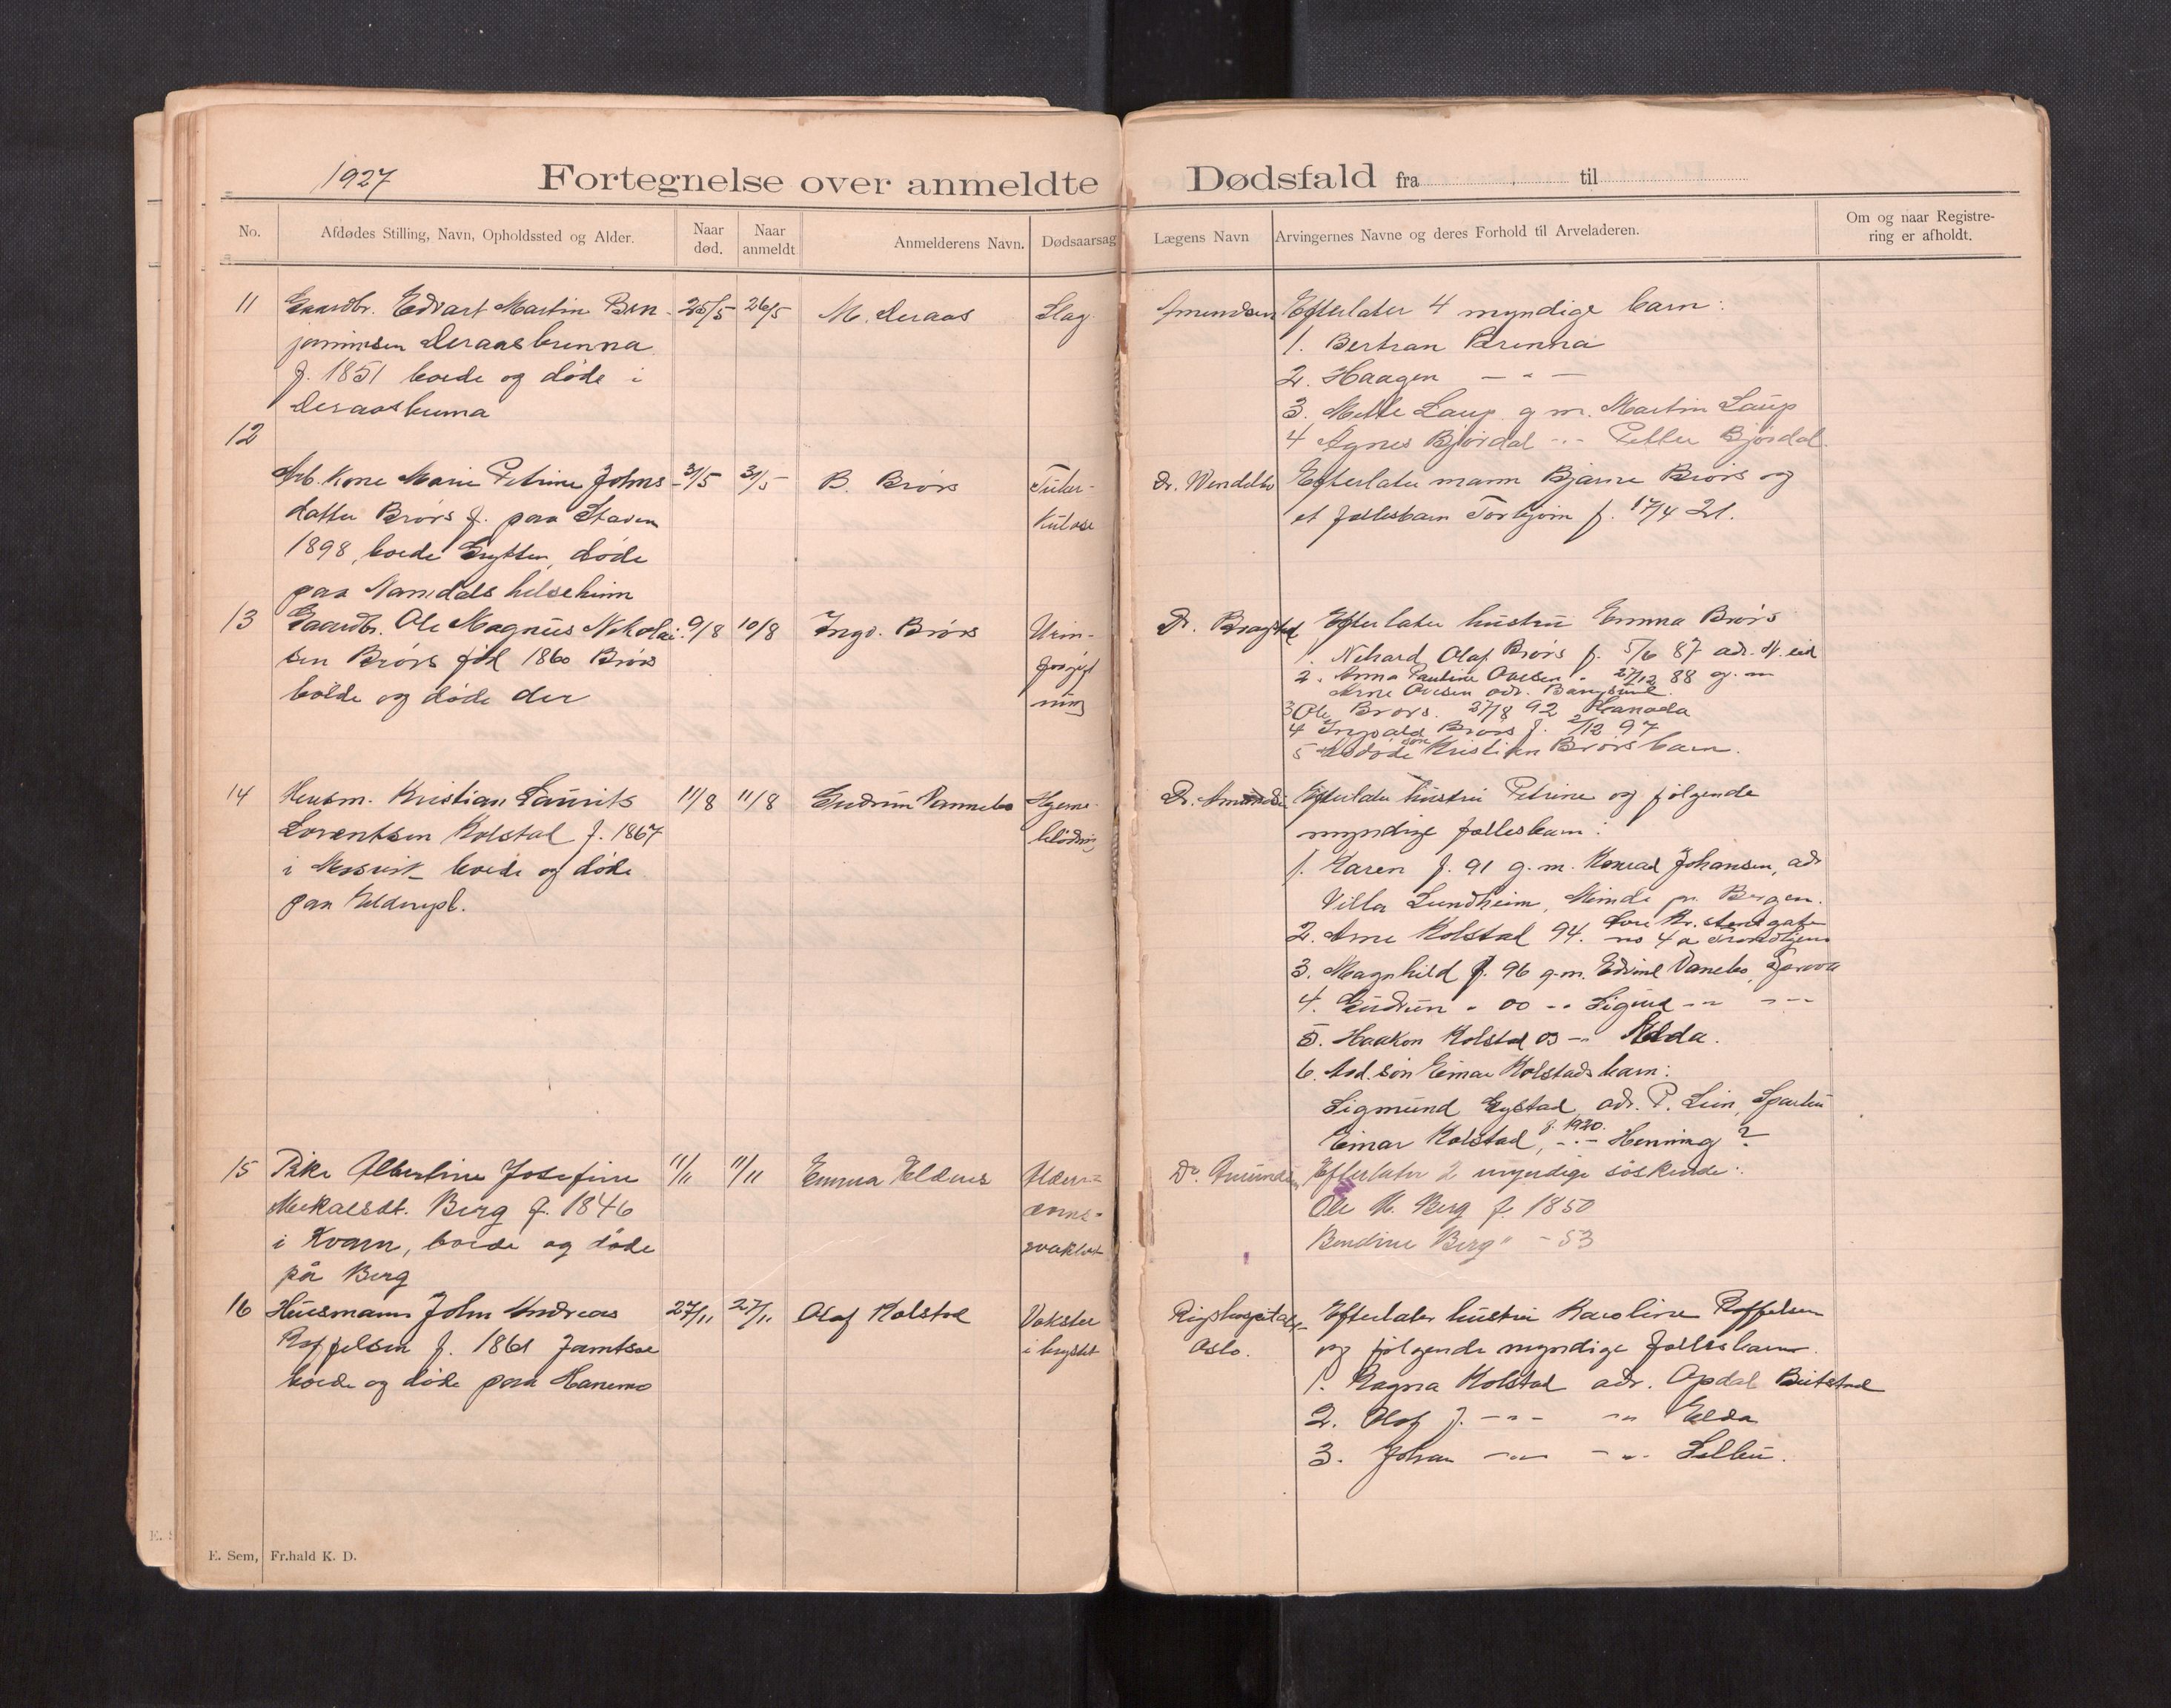 1927
Fortegnelse over anmeldte Dødsfald fra til
No.
Afdødes Stilling, Navn, Opholdssted og Alder.
Naar død.
Naar anmeldt
Anmelderens Navn.
Dødsaarsag
Lægens Navn
Arvingernes Navne og deres Forhold til Arveladeren.
Om og naar Registre-
ring er afholdt.
11 Gaardbr. Edvart Martin Ben- 25/5 26/5 M. Deraas Slag Amundsen
jaminsen Deraasbrenna
f. 1851 boede og døde i
Deraasbrenna
Efterlater 4 myndige barn:
1. Bertran Brenna
2. Haagen — " —
3. Mette Laup g. m. Martin Laup
4 Agnes Bjørdal -"- Petter Bjørdal
12
Arb. kone Marie Petrine Johns- 31/5 31/5 B. Brørs Tuber-
kulose Dr. Wendelbo
datter Brørs f. paa Staven
1898, boede Grytten, døde
paa Namdals helseheim
Efterlater mann Bjarne Brørs og
et fællesbarn Torbjørn f. 17/4 21.
13 Gaardbr. Ole Magnus Nikolai- 9/8 10/8 Ingv. Brørs Urin-
forgift
ning Dr. Bragstad
sen Brørs fød 1860 Brørs
bodde og døde der
Efterlater hustru Emma Brørs
1. Nikard Olaf Brørs f. 5/6 87 adr. N. eid
2. Anna Pauline Ovesen " 27/12 88 g. m
Arne Ovesen adr. Bangsund.
3 Ole Brørs. 27/8 92 Kanada
4 Ingvald Brørs f. 2/12 97
5 Avdøde søn Kristian Brørs barn.
14 Husm. Kristian Laurits 11/8 11/8 Gudrun Vannebo Hjerne-
blødning Dr. Amundsen
Lorentsen Kolstad f. 1867
i Mosvik boede og døde
paa Eldenpl.
Efterlater hustru Petrine og følgende
myndige fællesbarn:
1. Karen f. 91 g. m. Konrad Johansen, adr
Villa Lundheim, Minde pr. Bergen.
2. Arne Kolstad 94.
no 4 a Trondhjem
3. Magnhild f. 96 g. m. Edvind Vanebo,
4. Gudrun " 00 -" Sigurd -"- -"-
5. Haakon Kolstad 03 -" Elda.
6. Avd. søn Einar Kolstads barn:
Sigmund Rystad, adr. P. Lein, Sparbu
Einar Kolstad, f. 1920. -"- Henning?
15 Pike Albertine Josefine 11/11 11/11 Emma Eldnes Alder-
doms-
svakhet Dr. Amundsen
Mekalsdt. Berg f. 1846
i Kvam, boede og døde
på Berg
Efterlater 2 myndige søskende:
Ole M. Berg f. 1850
Bendine Berg " - 53
16 Husmann John Andreas 27/11 27/11 Olaf Kolstad Vokster
i brystet Rigshospitalet
Oslo.
Roffelsen f. 1861
boede og døde paa Hanemo
Efterlater hustru Karoline Roffelsen
og følgende myndige fællesbarn.
1. Ragna Kolstad adr. Opdal Beitstad
2. Olaf J. -"- -"- Elda
3. Johan -"- -"- Selbu.
E. Sem, Fr.hald K. D.